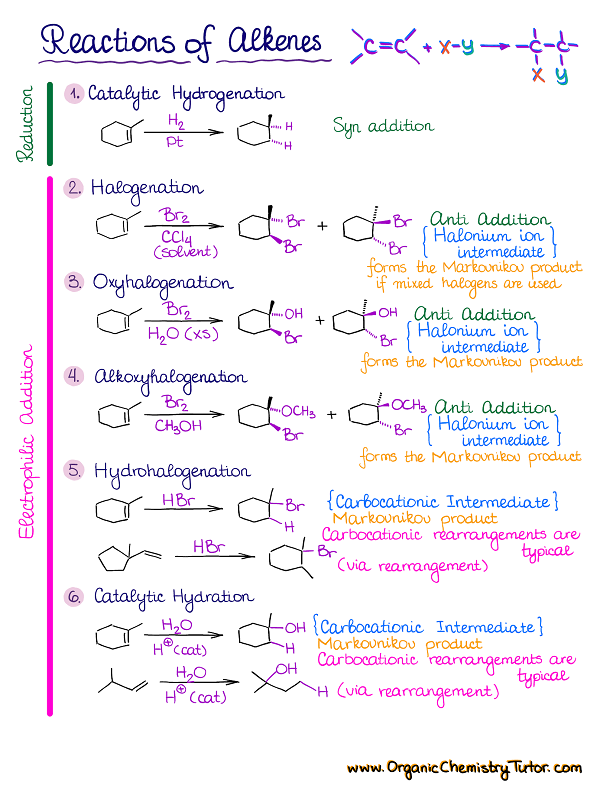 Reactions of Alkenes
C=C + X-Y → -C-C-
X Y
Reduction
1. Catalytic Hydrogenation
H2
Pt
H
H
Syn addition
Electrophilic Addition
2. Halogenation
Br2
CCl4
(solvent)
Br
Br
+
Br
Br
Anti Addition
{Halonium ion
intermediate}
forms the Markovnikov product
if mixed halogens are used
3. Oxyhalogenation
Br2
H2O (xs)
OH
Br
+
OH
Br
Anti Addition
{Halonium ion
intermediate}
forms the Markovnikov product
4. Alkoxyhalogenation
Br2
CH3OH
OCH3
Br
+
OCH3
Br
Anti Addition
{Halonium ion
intermediate}
forms the Markovnikov product
5. Hydrohalogenation
HBr
Br
H
{Carbocationic Intermediate}
Markovnikov product
Carbocationic rearrangements are
typical
HBr
Br
(via rearrangement)
6. Catalytic Hydration
H2O
H⊕(cat)
OH
H
{Carbocationic Intermediate}
Markovnikov product
Carbocationic rearrangements are
typical
H2O
H⊕(cat)
OH
H
(via rearrangement)
www.OrganicChemistryTutor.com